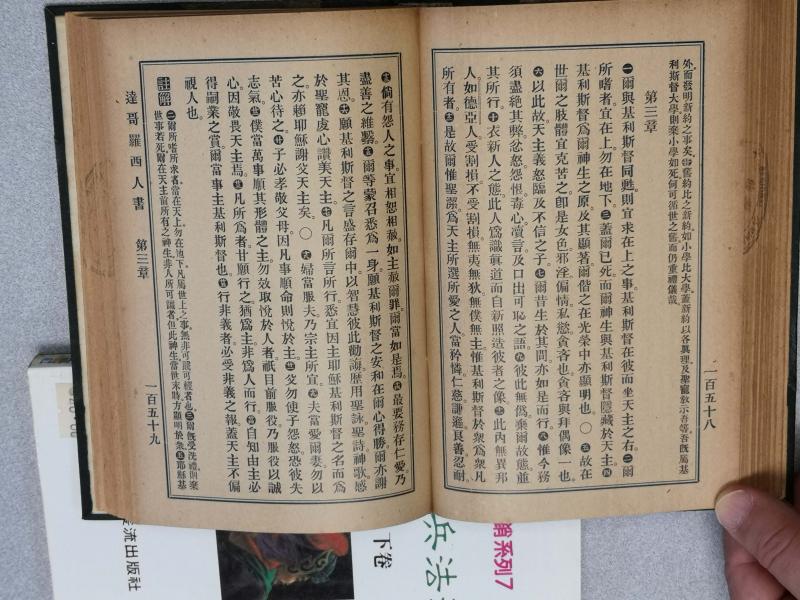 外而發明新約之事矣舊約比之新約如小學比大學蓋新約以各眞理及聖寵敎示吾等吾旣屬基
利斯督大學則棄小學如死何可循世之舊而仍重禮儀哉
第三章
一爾與基利斯督同甦則宜求在上之事基利斯督在彼而坐天主之右。二爾
所嗜者宜在上勿在地下。三蓋爾已死而爾神生與基利斯督隱藏於天主。四
基利斯督爲爾神生之原及其顯著爾偕之在光榮中亦顯明也。〇五故在
世爾之肢體宜克苦之卽是女色邪淫偏情私慾貪吝也貪吝與拜偶像一也
六以此故天主義怒臨及不信之子。七爾昔生於其間亦如是而行。八惟今務
須盡絕其弊忿怒怨恨毒心凟言及口出可恥之語。九彼此無僞棄爾故態並
其所行。十衣新人之態此人爲識眞道而自新照造彼者之像。十一此內無異邦
人如德亞人受割損不受割損無夷無狄無僕無主惟基利斯督於衆爲衆凡
所有者。十二是故爾惟聖潔爲天主所選所愛之人當矜憐仁慈謙遜良善忍耐
一百五十八
十三倘有怨人之事宜相恕相赦如主赦爾罪爾當如是焉。十四最要務存仁愛乃
盡善之維繫。十五爾等蒙召悉爲一身願基利斯督之安和在爾心得勝爾亦謝
其恩。十六願基利斯督之言盛存爾中以智慧彼此勸誨歷用聖詠聖詩神歌感
於聖寵虔心讚美天主。十七凡爾所言所行悉宜因主耶穌基利斯督之名而爲
之亦賴耶穌謝父天主矣。〇十八婦當服夫乃宗主所宜。十九夫當愛爾妻勿以
苦心待之。二十子必孝敬父母因凡事順命則悅於主。廿一父勿使子怨怒恐彼失
志氣。廿二僕當萬事順其形體之主勿效取悅於人者祇目前服役乃服役以誠
心因敬畏天主焉。廿三凡所爲者甘願行之猶爲主非爲人而行。廿四自知由主必
得嗣業之賞爾當事主基利斯督也。廿五行非義者必受非義之報蓋天主不偏
視人也。
註解二爾所嗜所求者當在天上勿在地下凡屬世上之事無非可說可輕者也。三爾旣受洗禮則棄
世事若死爾在天主前所有之神生非人所可識者但此神生當世末時方顯明於衆。五耶穌基
達哥羅西人書　第三章
一百五十九
流出版社
下卷
兵法
系列7